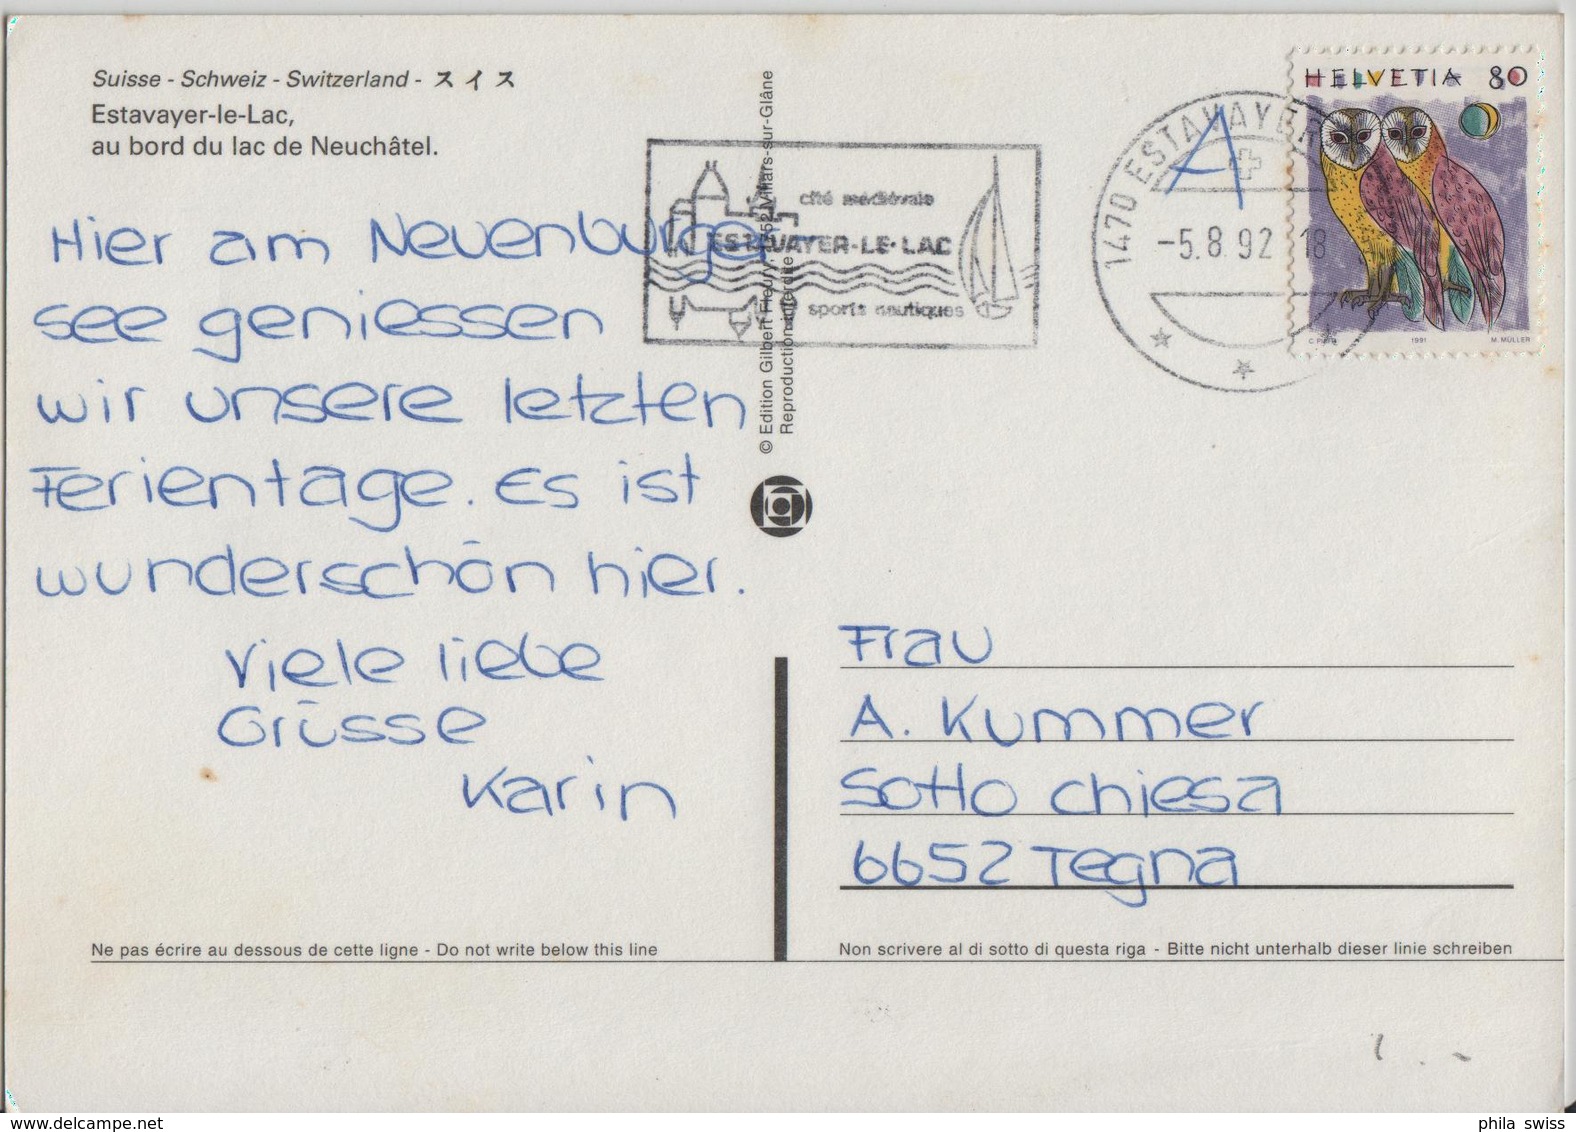 Suisse - Schweiz - Switzerland - スイス
Estavayer-le-Lac,
au bord du lac de Neuchâtel.
Hier am Neuenburger
see geniessen
wir unsere letzten
Ferientage. Es ist
wunderschön hier.
Viele liebe
Grüsse
Karin
© Edition Gilbert Fleury, Villars-sur-Glâne
Reproduction interdite
cité médiévale
ESTAVAYER-LE-LAC
sports nautiques
1470 ESTAVAYER
-5.8.92 18
A
HELVETIA 80
1991
M. MÜLLER
Frau
A. Kummer
Sotto chiesa
6652 Tegna
Ne pas écrire au dessous de cette ligne - Do not write below this line
Non scrivere al di sotto di questa riga - Bitte nicht unterhalb dieser linie schreiben
phila swiss